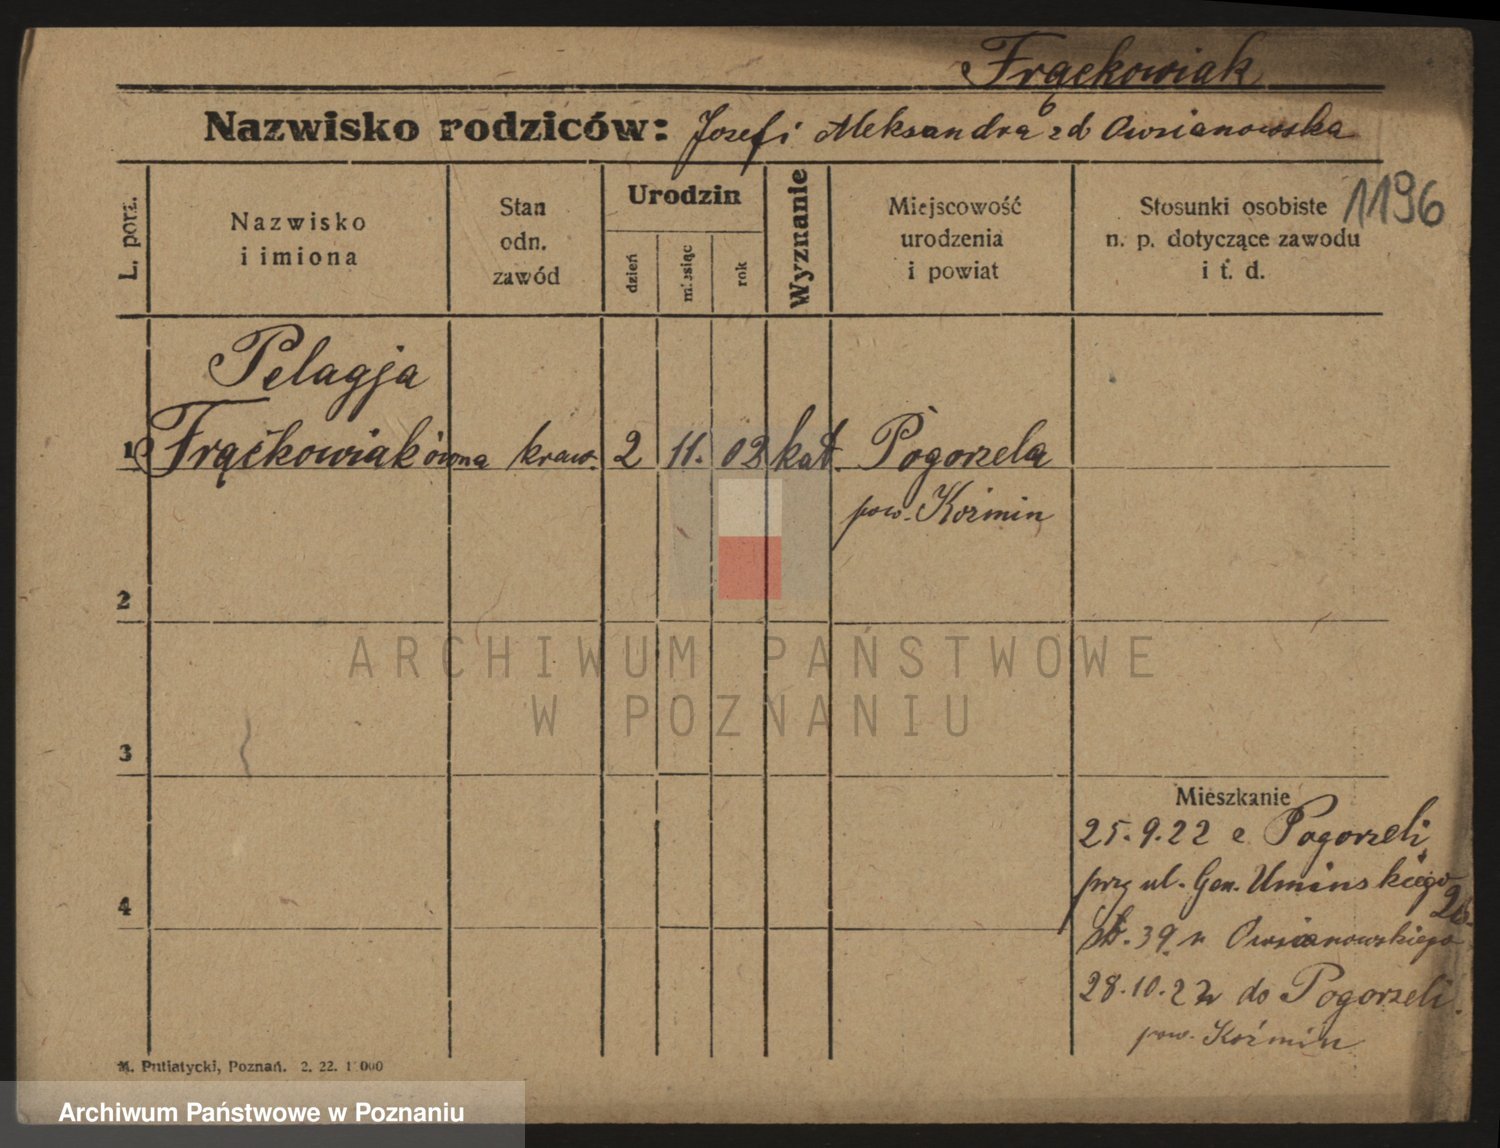 Frąckowiak
Nazwisko rodziców: Józef i Aleksandra zd Owsianowska
1196
L. porz.
Nazwisko
i imiona
Stan
odn.
zawód
Urodzin
dzień
miesiąc
rok
Wyznanie
Miejscowość
urodzenia
i powiat
Stosunki osobiste
n. p. dotyczące zawodu
i t. d.
Pelagja
1 Frąckowiakówna kraw. 2 11. 02 kat. Pogorzela
pow. Koźmin
2
3
4
Mieszkanie
25.9.22 z Pogorzeli
przy ul. Gen. Umińskiego
39 u Owsianowskiego
28.10.22 do Pogorzeli.
pow. Koźmin
M. Putiatycki, Poznań. 2. 22. 1000
ARCHIWUM PAŃSTWOWE
W POZNANIU
Archiwum Państwowe w Poznaniu